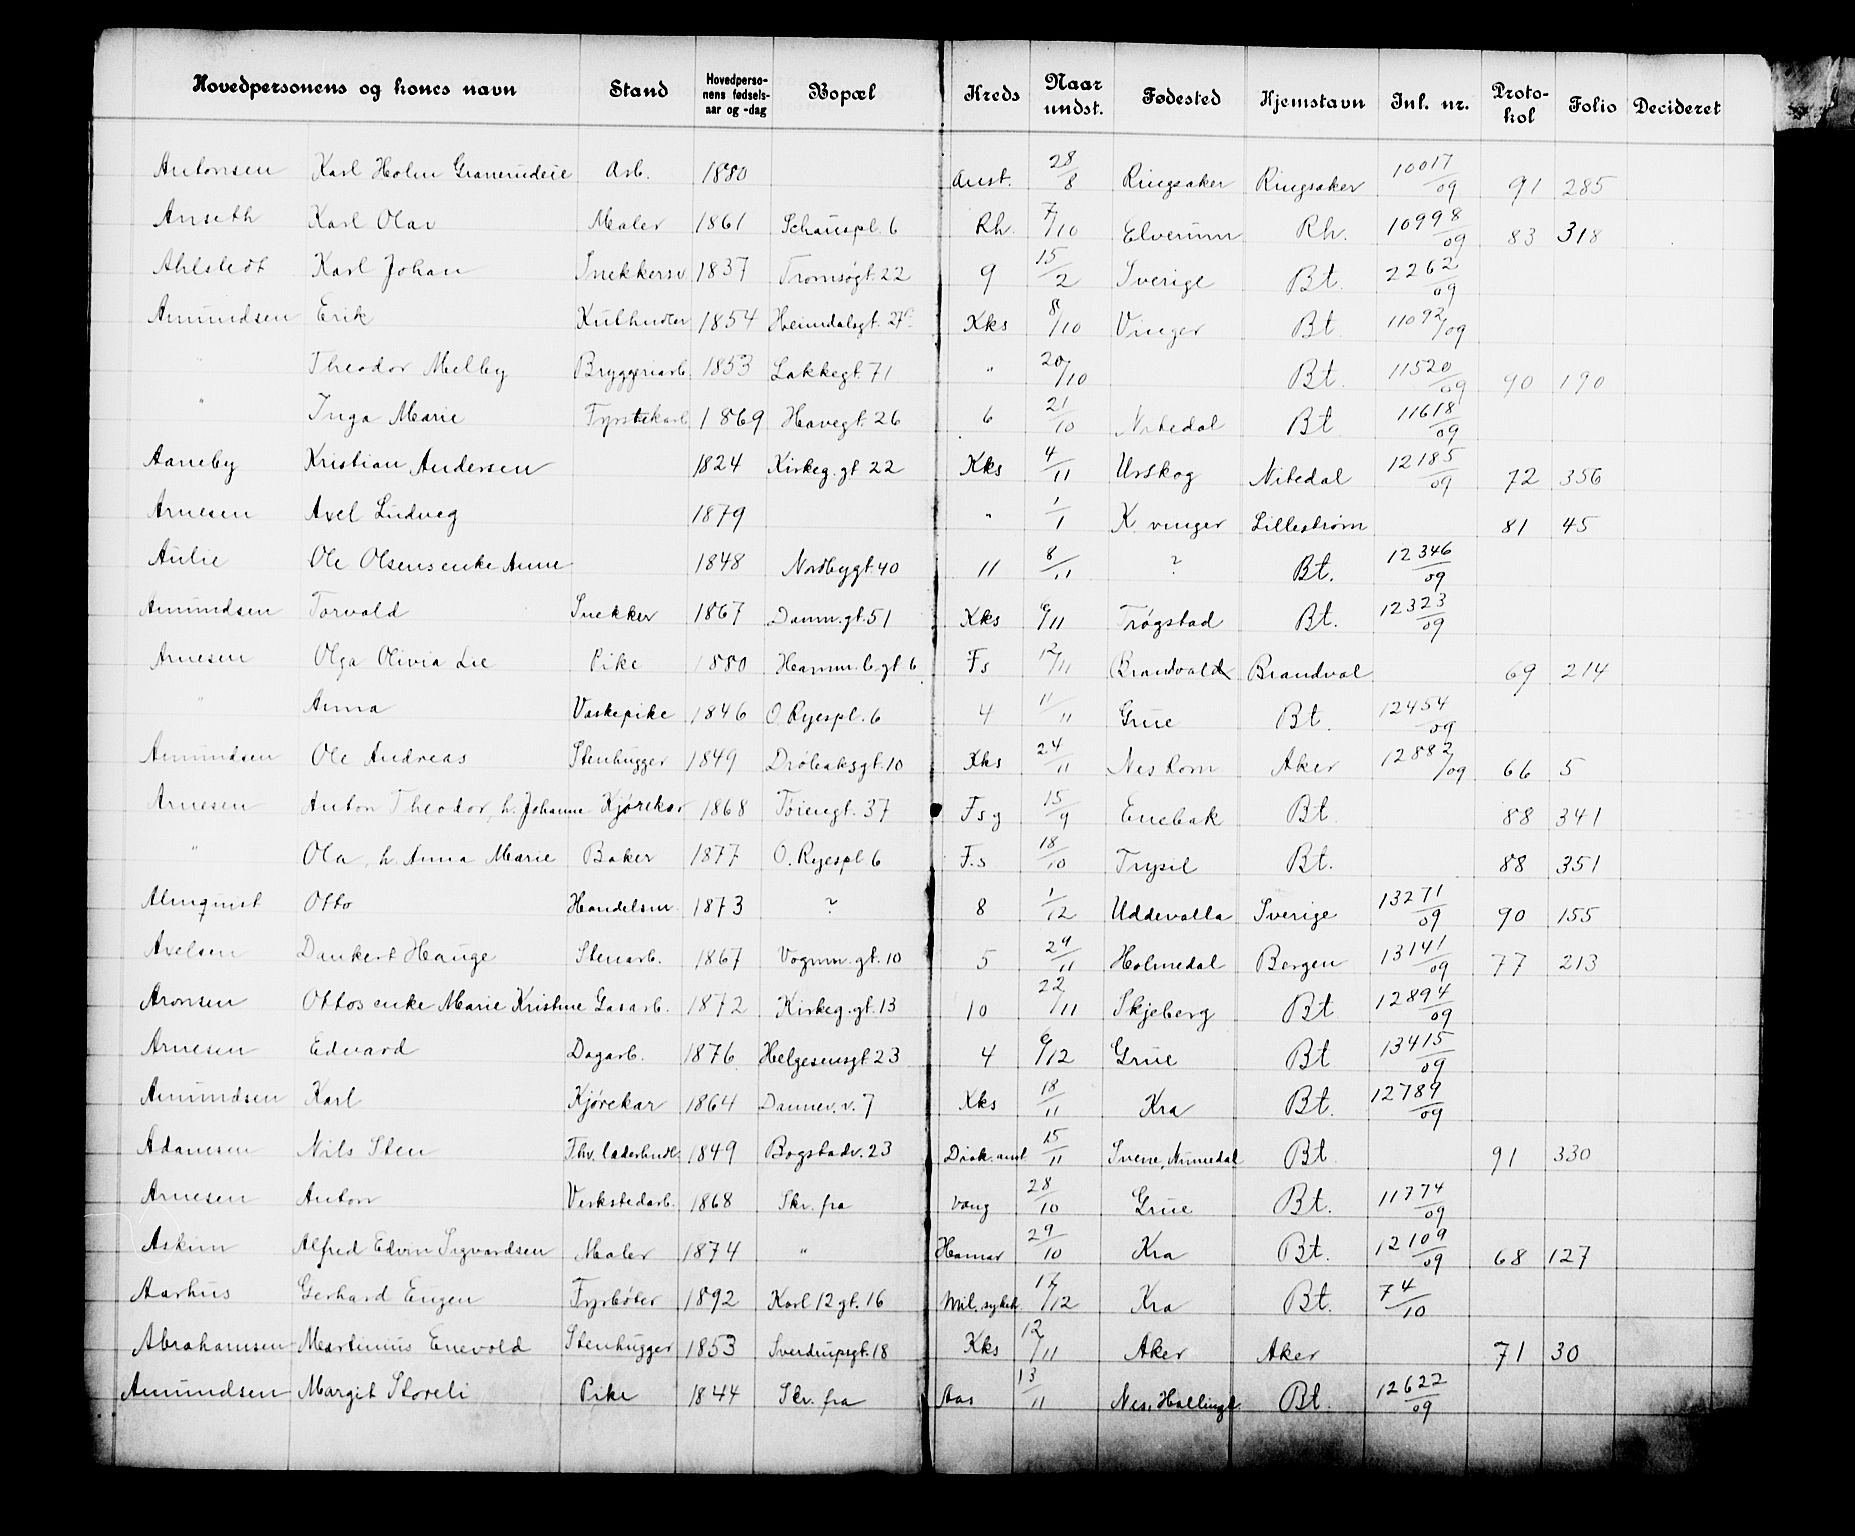 Hovedpersonens og kones navn | Stand | Hovedpersonens fødselsaar og -dag | Bopæl | Kreds | Naar undst. | Fødested | Hjemstavn | Inl. nr. | Protokol | Folio | Decideret
Antonsen Karl Holm Arb. 1880 Anst. 28/8 Ringsaker Ringsaker 10017/09 91 285
Anseth Karl Olav Maler 1861 Schauspl. 6 Rh. 7/10 Elverum Rh. 10998/09 83 318
Ahlstedt Karl Johan Snekkersv 1837 Tromsøgt. 22 9 15/2 Sverige Bt. 2262/09
Amundsen Erik Kulhndler 1854 Heimdalsgt. Kks 8/10 Vinger Bt. 11092/09
" Theodor Melby Bryggeriarb. 1853 Lakkegt. 71 " 20/10 Bt. 11520/09 90 190
" Inga Marie Fyrstikarb. 1869 Havegt. 26 6 21/10 Nitedal Bt 11618/09
Aaneby Kristian Andersen 1824 Kirkeg. gt. 22 Kks 4/11 Urskog Nitedal 12185/09 72 356
Arnesen Axel Ludvig 1879 " 1/1 K. vinger Lillestrøm 81 45
Aulie Ole Olsens enke Anne 1848 Nordbygt. 40 11 8/11 ? Bt. 12346/09
Amundsen Torvald Snekker 1867 Danm. gt. 51 Kks 6/11 Trøgstad Bt. 12323/09
Arnesen Olga Olivia Lie Pike 1880 Hamm. b. gt. 6 Fs 12/11 Brandvald Brandval 69 214
" Anna Vaskepike 1846 O. Ryespl. 6 4 11/11 Grue Bt. 12454/09
Amundsen Ole Andreas Stenhugger 1849 Drøbaksgt. 10 Kks 24/11 Nes Rom Aker 12882/09 66 5
Arnesen Anton Theodor, h. Johanne Kjørekar 1868 Tøiengt. 37 Fsg 15/9 Enebak Bt. 88 341
" Ola, h. Anna Marie Baker 1877 O. Ryespl 6 F.s 18/10 Trysil Bt. 88 351
Almquist Otto Handelsm. 1873 ? 8 1/12 Uddevalla Sverige 13271/09 90 155
Axelsen Dankert Hauge Stenarb. 1867 Vognm. gt. 10 5 29/11 Holmedal Bergen 13141/09 77 213
Aronsen Ottos enke Marie Kristine Gasarb. 1872 Kirkeg. gt. 13 10 22/11 Skjeberg Bt 12894/09
Arnesen Edvard Dagarb. 1876 Helgesensgt. 23 4 6/12 Grue Bt 13415/09
Amundsen Karl Kjørekar 1864 Dannev. v. 7 Kks 18/11 Kra Bt. 12789/09
Adamsen Nils Sten Fhv. læderhndl. 1849 Bogstadv. 23 Diak. anst 15/11 Svene, Numedal Bt. 91 330
Arnesen Anton Verkstedarb. 1868 Skr. fra Vang 28/10 Grue Bt. 11774/09
Askim Alfred Edvin Sigvardsen Maler 1874 " Hamar 29/10 Kra Bt. 12109/09 68 127
Aarhus Gerhard Eugen Fyrbøter 1892 Karl 12 gt. 16 Mil. sykeh. 17/12 Kra Bt. 74/10
Abrahamsen Martinius Enevold Stenhugger 1853 Sverdrupsgt. 18 Kks 12/11 Aker Aker 71 30
Amundsen Margit Storeli Pike 1844 Skr. fra Aas 13/11 Nes, Hallingd. Bt. 12622/09